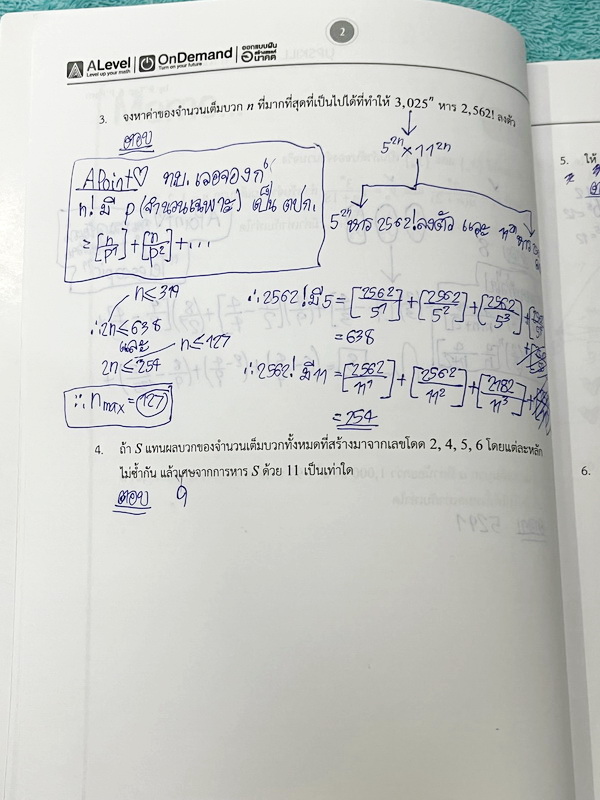 2
ALevel
Level up your math
OnDemand
Turn on your future
ออกแบบฝัน
สร้างสรรค์
อนาคต
3. จงหาค่าของจำนวนเต็มบวก n ที่มากที่สุดที่เป็นไปได้ที่ทำให้ 3,025ⁿ หาร 2,562! ลงตัว
ตอบ
5²ⁿ × 11²ⁿ
A Point♡ ทบ. เลอจองก์
n! มี p (จำนวนเฉพาะ) เป็น ตปก.
= [n/p¹] + [n/p²] + ...
5²ⁿ หาร 2562! ลงตัว และ 11²ⁿ หาร
n ≤ 319
∴ 2n ≤ 638
และ
2n ≤ 254
n ≤ 127
∴ n max = 127
∴ 2562! มี 5 = [2562/5¹] + [2562/5²] + [2562/5³] +
= 638
∴ 2562! มี 11 = [2562/11¹] + [2562/11²] + [2182/11³] +
= 254
4. ถ้า S แทนผลบวกของจำนวนเต็มบวกทั้งหมดที่สร้างมาจากเลขโดด 2, 4, 5, 6 โดยแต่ละหลัก
ไม่ซ้ำกัน แล้วเศษจากการหาร S ด้วย 11 เป็นเท่าใด
ตอบ 9
5. ให้
6.